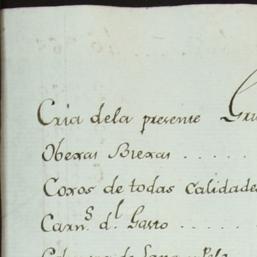 Cria dela presente
Obexas Biexas . . . . .
Coxos de todas calidades
Carn.s d.l Gasto . . . . .